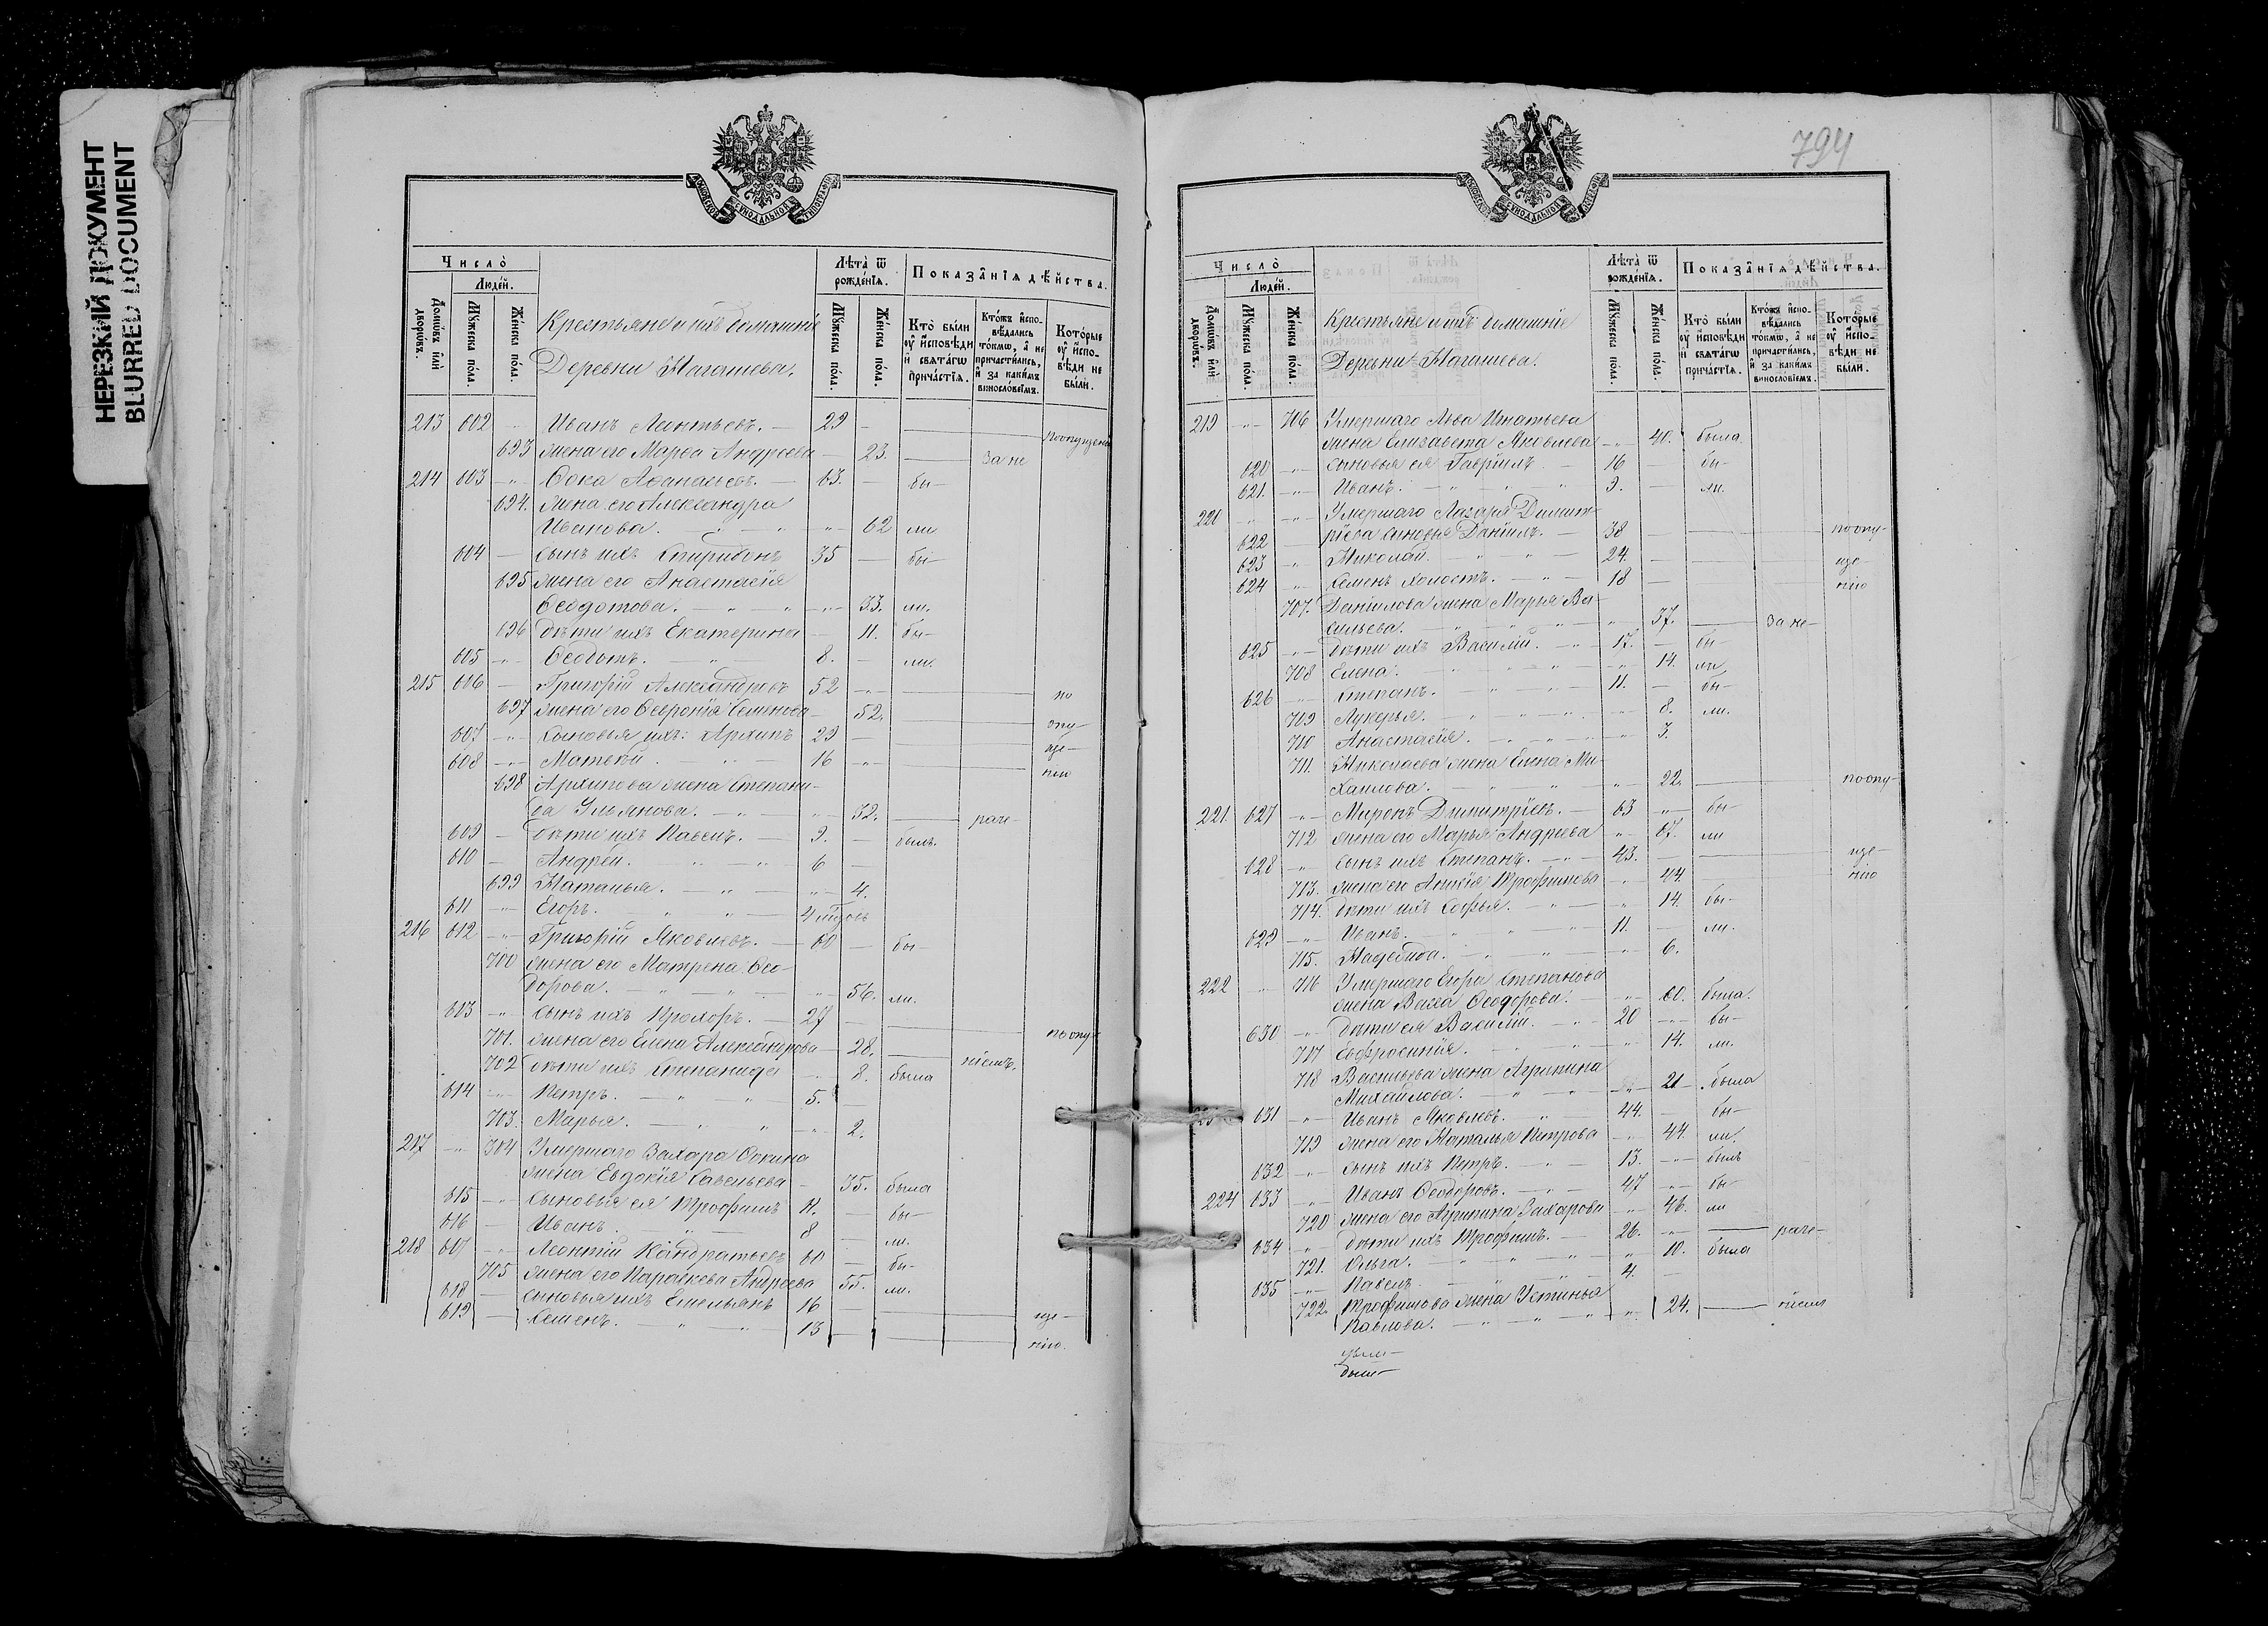 НЕРЕЗКИЙ ДОКУМЕНТ
BLURRED DOCUMENT
МОСКОВСКОЙ СѴНОДАЛЬНОЙ ТИПОГРАФІИ
Число̀
Люде́й.
Лѣта̀ ѿ рожде́нїѧ.
Показа̑нїѧ дѣ́йства.
Домѡ́въ и҆лѝ дворѡ́въ.
Мꙋ́жеска по́ла.
Же́нска по́ла.
Крестьяне и ихъ домашніе
Деревни Нагашева.
Мꙋ́жеска по́ла.
Же́нска по́ла.
Кто̀ бы́ли ᲂу҆ и҆сповѣ́ди и҆ свѧта́гѡ прича́стїѧ.
Кто́жъ и҆спо-вѣ́дались то́кмѡ, а҆ не причасти́лись, и҆ за каки́мъ виносло́вїемъ.
Кото́рые ᲂу҆ и҆спо-вѣ́ди не бы́ли.
213 602 - Иванъ Леонтьевъ. - 29 -
693 жена его Марѳа Андреева - 23. за не
214 603 -"- Ѳока Аѳанасьевъ. - 63. - бы-
694. жена его Александра
Иванова. - " - " -"- 62 ли
604 - сынъ ихъ Спиридонъ 35 - бы-
695 жена его Анастасія
Ѳеодотова. - " - " -"- 33. ли.
696 дѣти ихъ Екатерина - 11. бы-
605 -"- Ѳеодотъ. - " - 8. - ли.
215 606 - Григорій Александровъ 52 -"- по
697 жена его Ѳевронія Семенова - 52. опу-
607 -"- сыновья ихъ: Архипъ 29 - ще-
608 -"- Матвѣй. - " - 16 -"- нію
698 Архипова жена Степани-
да Ульянова. - " - -"- 32. раче-
609 - дѣти ихъ Павелъ. - 9. - былъ.
610 - Андрей. " - " - 6 -
699 Наталья. - " - -"- 4.
611 -"- Егоръ. - " " - 4 мѣсяцовъ
216 612 -"- Григорій Яковлевъ. - 60 - бы-
700 жена его Матрена Ѳео-
дорова. - " - " - -"- 56. ли.
613 -"- сынъ ихъ Прохоръ. - 27 - по опу-
701. жена его Елена Александрова - 28. ніемъ.
702 дѣти ихъ Степанида - 8. была
614 -"- Петръ. - " - " 5. -
703. Марья. - " - " -"- 2.
217 -"- 704 Умершаго Захара Ѳокина
жена Евдокія Савельева - 35. была
615 -"- сыновья ея Трофимъ 11. - бы-
616 - Иванъ. - " - 8 - ли.
218 617 -"- Леонтій Кандратьевъ 60 - бы-
705 жена его Параскева Андреева 55. ли.
618 - сыновья ихъ Емельянъ 16 - ще-
619 - Семенъ. - " - " 13 - нію.
794
МОСКОВСКОЙ СѴНОДАЛЬНОЙ ТИПОГРАФІИ
Число̀
Люде́й.
Лѣта̀ ѿ рожде́нїѧ.
Показа̑нїѧ дѣ́йства.
Домѡ́въ и҆лѝ дворѡ́въ.
Мꙋ́жеска по́ла.
Же́нска по́ла.
Крестьяне и ихъ домашніе
Деревни Нагашева.
Мꙋ́жеска по́ла.
Же́нска по́ла.
Кто̀ бы́ли ᲂу҆ и҆сповѣ́ди и҆ свѧта́гѡ прича́стїѧ.
Кто́жъ и҆спо-вѣ́дались то́кмѡ, а҆ не причасти́лись, и҆ за каки́мъ виносло́вїемъ.
Кото́рые ᲂу҆ и҆спо-вѣ́ди не бы́ли.
219 -"- 706 Умершаго Льва Игнатьева
жена Елизавета Яковлева -"- 40. была.
620 -"- сыновья ея Гавріилъ. - 16 - бы-
621. -"- Иванъ. - " - " 9. - ли.
220 -"- -"- Умершаго Лазаря Димит-
622 - ріева сыновья Даніилъ. - 38 - по опу-
623 -"- Николай. " - " - 24. - ще-
624 -"- Семенъ холостъ. - " - 18 - нію
707. Даніилова жена Марья Ва-
сильева. - " - " - " 37. за не-
625 -"- дѣти ихъ Василій. - " - 17. - бы-
708 Елена. - " - " - -"- 14. ли
626 -"- Степанъ. - " - " - 11. - бы-
709 Лукерья. - " - " - -"- 8. ли.
710 Анастасія. - " - " - -"- 3.
711. Николаева жена Елена Ми-
хаилова. - " - " - " - 22. по опу-
221. 627 -"- Миронъ Димитріевъ. - 63 -"- бы-
712 жена его Марья Андреева -"- 67. ли
628 -"- сынъ ихъ Степанъ. - " - 43. - ще-
713. жена его Анисія Трофимова -"- 44. нію
714. дѣти ихъ Софья. - " - -"- 14. бы-
629 -"- Иванъ. - " - " - 11. - ли.
715. Надежда. - " - " - -"- 6.
222 -"- 716 Умершаго Егора Степанова
жена Васса Ѳеодорова. - -"- 60. была.
630 -"- дѣти ея Василій. - " - 20 -"- бы-
717 Евфросинія. - " - " -"- 14. ли.
718 Васильева жена Агрипина
Михайлова. - " - " - -"- 21 - была
223 631 -"- Иванъ Яковлевъ. - " - 44. - бы-
719 жена его Наталья Петрова -"- 44. ли.
632 -"- сынъ ихъ Петръ. - " - 13. -"- былъ
224 633 -"- Иванъ Ѳеодоровъ. - " - 47 -"- бы-
720 жена его Агрипина Захарова -"- 46. ли
634 -"- дѣти ихъ Трофимъ. - " - 26. -"- раче-
721. Ольга. - " - " - " -"- 10. была
635 -"- Павелъ. - " - " - 4. -
722. Трофимова жена Устинья
Павлова. - " - " - " -"- 24. ніемъ
были-